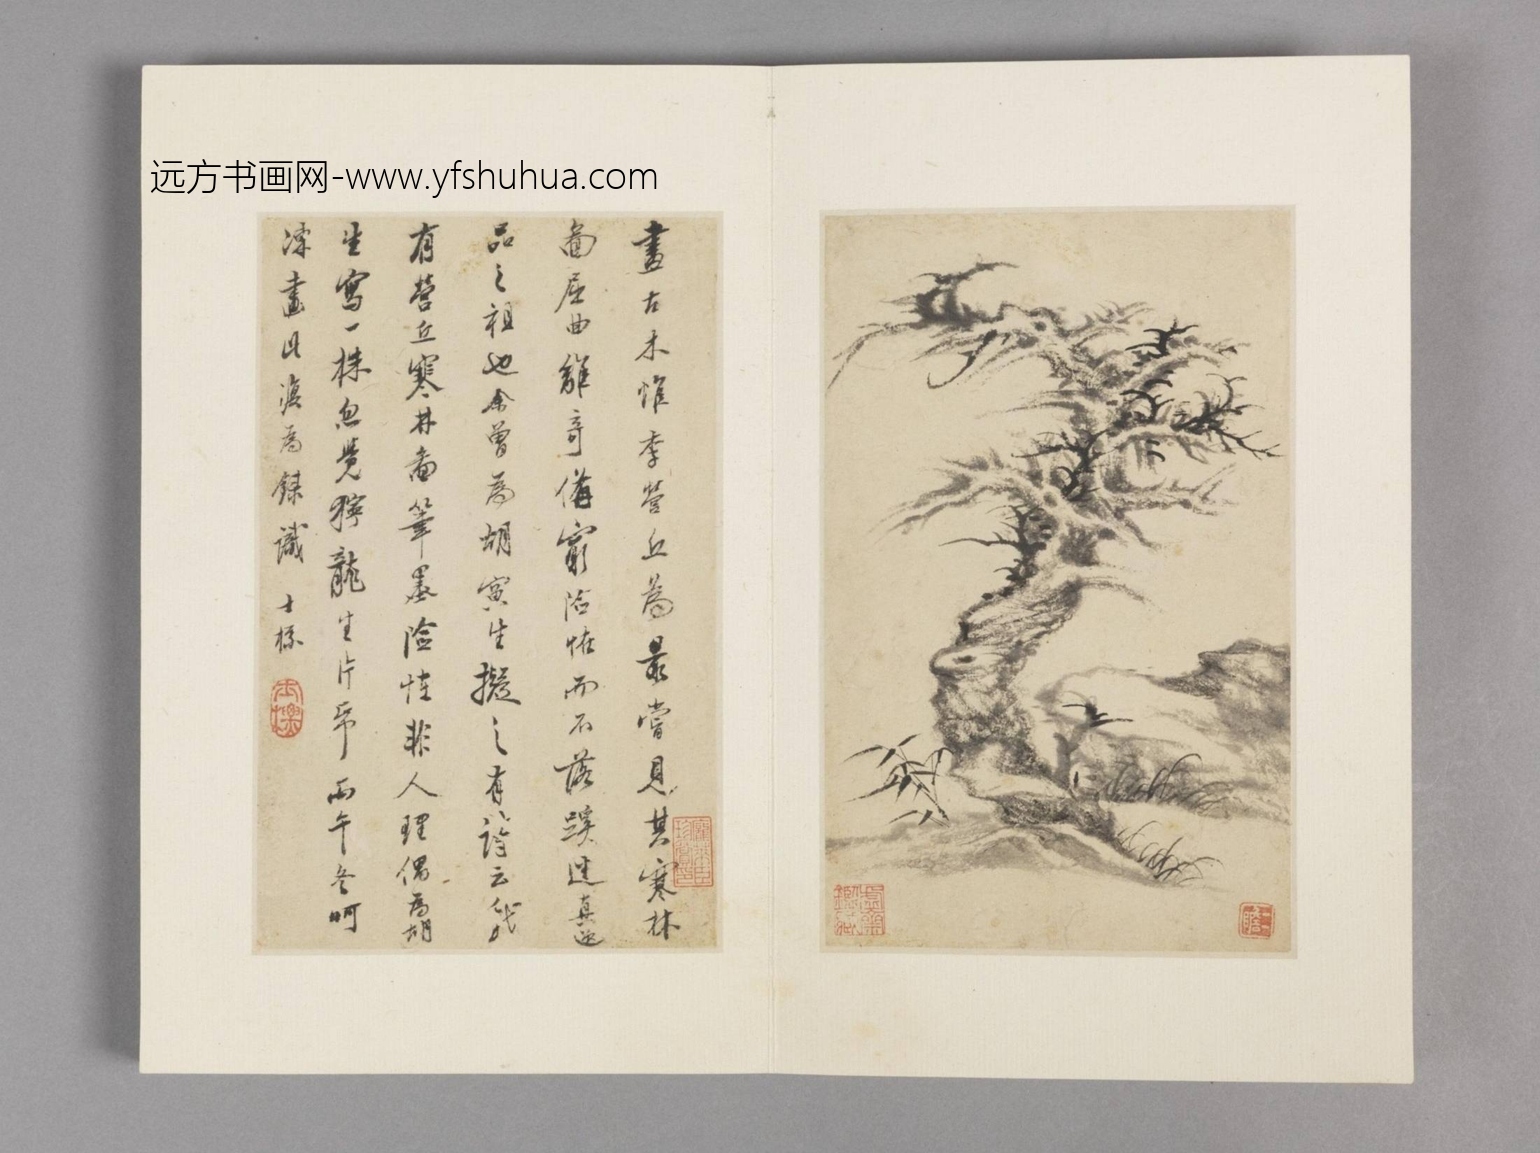 远方书画网-www.yfshuhua.com
畫古木惟李營丘為最嘗見其寒林
圖屈曲離奇備窮詭怪而不落蹊逕真逸
品之祖也余曾為胡寅生擬之有詩云我
有營丘寒林圖筆墨險怪非人理偶為胡
生寫一株忽覺獰龍生片紙丙午冬呵
凍畫此漫為錄識 士標